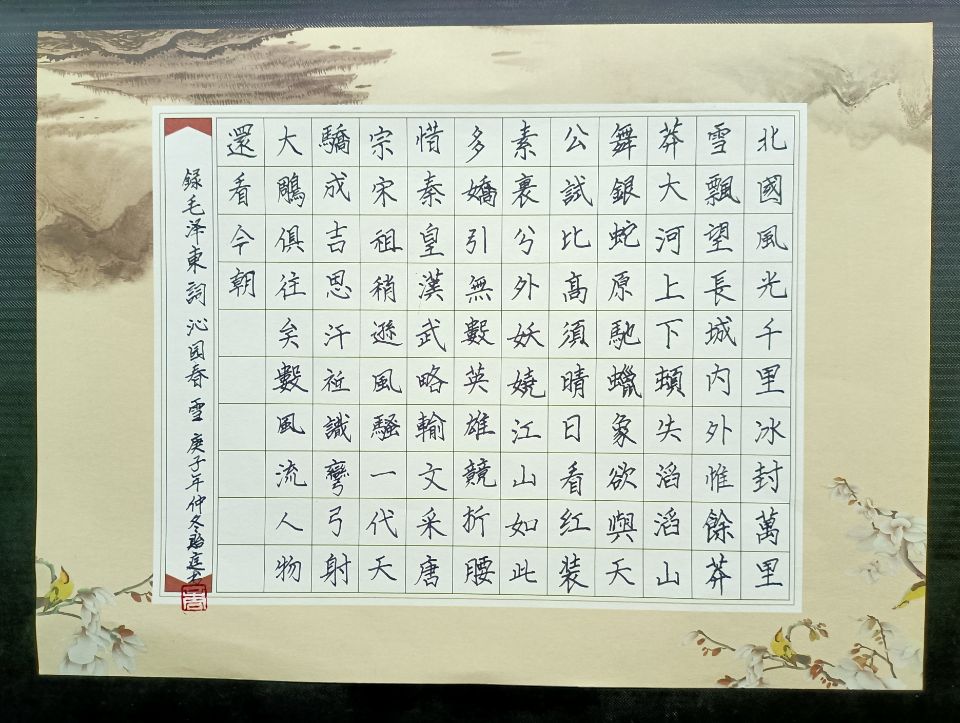 北國風光千里冰封萬里
雪飄望長城内外惟餘莽
莽大河上下頓失滔滔山
舞銀蛇原馳蠟象欲與天
公試比高須晴日看红装
素裹兮外妖嬈江山如此
多嬌引無數英雄競折腰
惜秦皇漢武略輸文采唐
宗宋祖稍遜風騷一代天
驕成吉思汗祇識彎弓射
大鵰俱往矣數風流人物
還看今朝
録毛泽東詞 沁园春 雪 庚子年仲冬